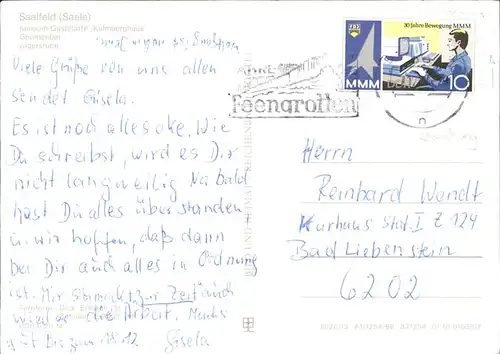 Saalfeld (Saale)
Viele Grüße von uns allen
sendet Gisela.
Es ist noch alles oke. Wie
Du schreibst, wird es Dir
nicht langweilig Na bald
hast Du alles überstanden
u. wir hoffen, daß dann
bei Dir auch alles in Ordnung
ist. Mir schmeckt "zur Zeit" auch
wieder die Arbeit.
Bis zum 18.12
Gisela
30 Jahre Bewegung MMM
FDJ
MMM
DDR
10
Feengrotten
Herrn
Reinhard Wendt
Kurhaus Stat. I Z 124
Bad Liebenstein
6202